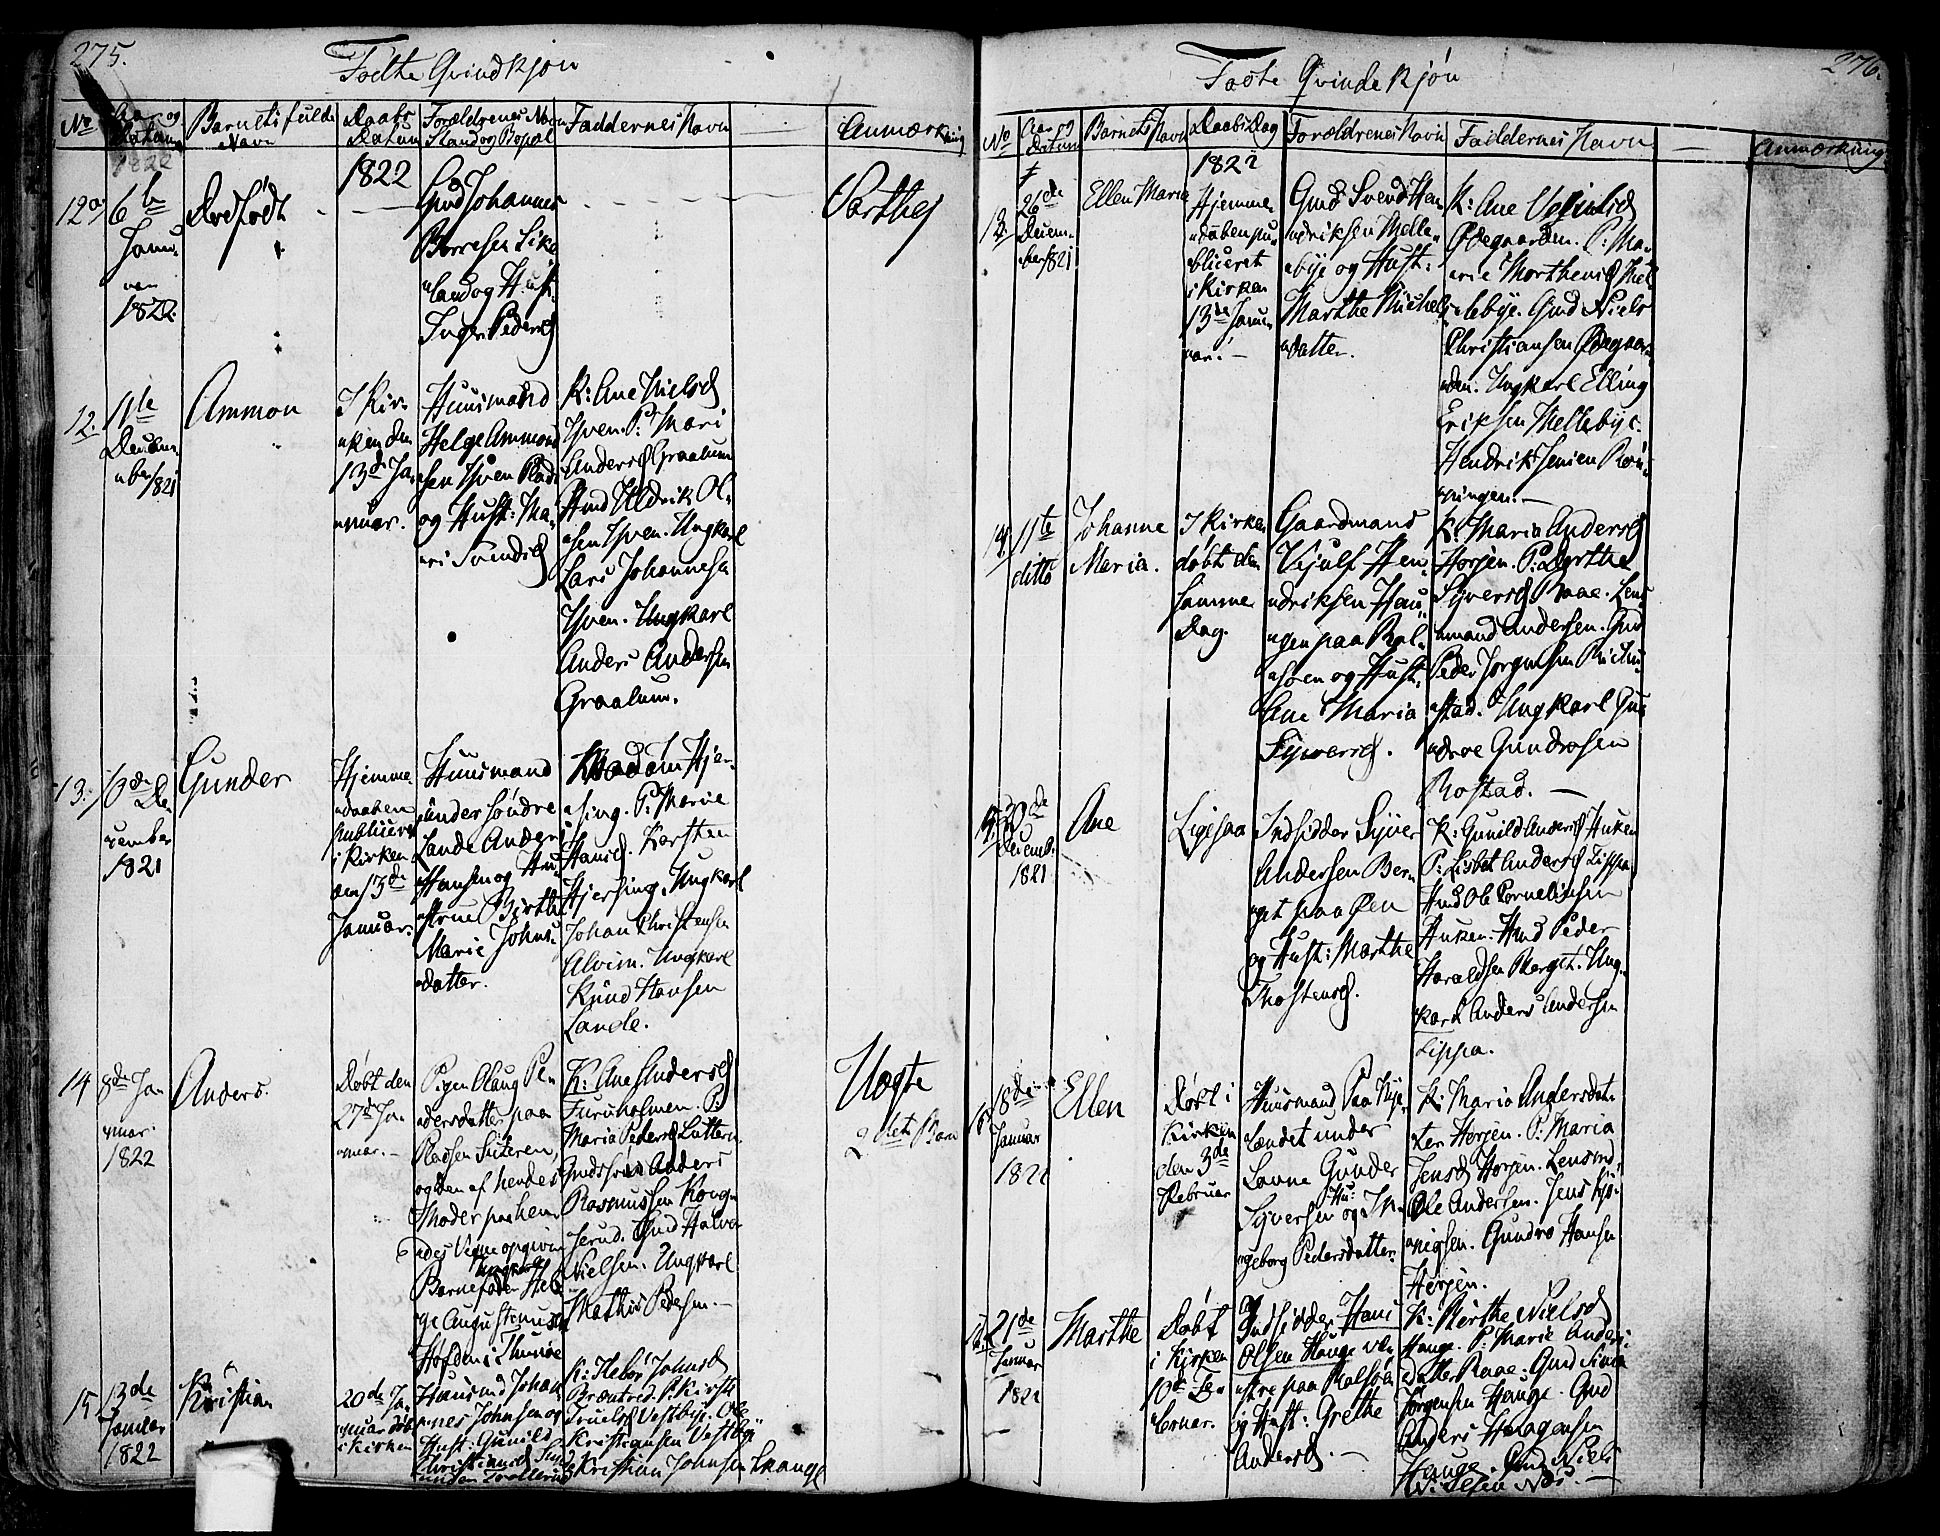 275.
Fødte Qvindkjøn
No
Aar og Datum
Barnets fulde Navn
Daabs Datum
Forældrenes Navn Stand og Bopæl
Faddernes Navn
Anmærkning
1822
1822
12a
6te
Janu-
1822.
Dødfødt
Gmd Johannes
Borresen
land og Hust.
Inger Pedersd
12.
11te
Decem-
ber 1821
Ammon
I Kir-
ken den
13de Ja-
nuar.
Huusmand
Helge Ammond
sen Hven Plads
og Hust: Ma-
ri Svendsd
K: Ane Nielsd
Hven. P: Mari
Andersd Graalum
Hmd Uldrik Ol-
sen Hven. Ungkarl
Lars Johannesen
Hven. Ungkarl
Anders Andersen
Graalum.
13.
10de De
cember
1821
Gunder
Hjemme
daaben
publiceret
i Kirken
den 13de
Januar.
Huusmand
under søndre
Lande Anders
Hansen og Hu-
strue Birthe
Marie Johns-
datter.
Madam Hjer-
sing. P: Marie
Hansd. Karsten
Hjersing. Ungkarl
Johan Christensen
Alvim. Ungkarl
Knud Hansen
Lande.
14
8de Ja-
nuar
1822
Anders.
Døbt den
27de Ja-
nuar.-
Pigen Olaug Pe-
dersdatter paa
Pladsen
og den af hendes
Moder paa hen-
des Vegne opgivne
Ungkarl
Barnefader Hel-
ge Augustinusen
Høfden i Thunøe
K: Ane Andersd
Furuholmen. P:
Maria Pedersd
Gmdssøn Anders
Rasmussen Kong-
serud. Gmd Halvor
Nielsen. Ungkarl
Mathis Pedersen.-
Uægte
2det Barn
15
13de
Januar
1822
Kristian
20de Ja-
nuar døbt
i Kirken
Huusmd Johan-
nes Johnsen og
Hust: Gunild
Christiansd
under
K: Johnsd
P: Kirsti
Truelsd Vestbye. Ole
Kristiansen Vestbye
Kristian Johnsen
276.
Fødte Qvindekjøn
No
Aar og Datum
Barnets Navn
Daabs Dag
Forældrenes Navn
Faddernes Navn
Anmærkning
1822
13.
26de
Decem-
ber 1821
Ellen Maria
Hjemme
daaben pu-
bliceret
i Kirken
13de Janu-
ar.-
Gmd Svend Hen-
driksen Melle-
bye og Hust:
Marthe Michels
datter.
K: Ane
Ødegaarden. P: Ma-
rie Morthensd Mel-
lebye. Gmd Niels
Christiansen Ødegaar-
den. Ungkarl Elling
Eriksen Mellebye.
Hendrik Jensen Røn-
ningen.-
14.
11te
ditto
Johanne
Maria.
I Kirken
døbt den
samme
Dag.
Gaardmand
Vejulf Hen-
driksen Hau-
gen paa Rol-
søen og Hust:
Ane Maria
Syversd.
K: Maria Andersd
Horjen. P: Dorthe
Syversd Raae. Lens-
mand Andersen. Gmd
Peder Jørgensen
stad. Ungkarl Gun-
droe Gundrosen
Rostad.-
15.
30de
Decemb.
1821
Ane
Ligesaa
Indsidder Syver
Andersen Ber-
get paa Øen
og Hust: Marthe
Thostensd.
K: Gunild Andersd Huken
P: Lisbet Andersd Lippa
Hmd Ole Cornelinsen
Huken. Hmd Peder
Haraldsen Berget. Ung-
karl Anders Andersen
Lippa.
16.
18de
Januar
1822
Ellen
Døbt i
Kirken
den 3de
Februar
Huusmand Paa Nye-
landet under
Lovne Gunder
Syversen og Hu: In-
geborg Pedersdatter.
K: Maria Andersdat-
ter Horjen. P: Maria
Jensd Horjen. Lensmd
Ole Andersen. Jens
Gundro Hansen
Horjen.
17.
21de
Januar
1822
Marthe
Døbt
i Kirken
10de Fe-
bruar.
Indsidder Hans
Olsen Hauge væ-
stre paa Rolsøe
og Hust: Grethe
Andersd.-
K: Berthe Nielsd
Hauge. P: Marie Anders-
datter Raae: Gmd Simen
Jørgensen Hauge. Gmd
Anders Haagensen
Hauge. Gmd Niels
Nielsen Næs.-